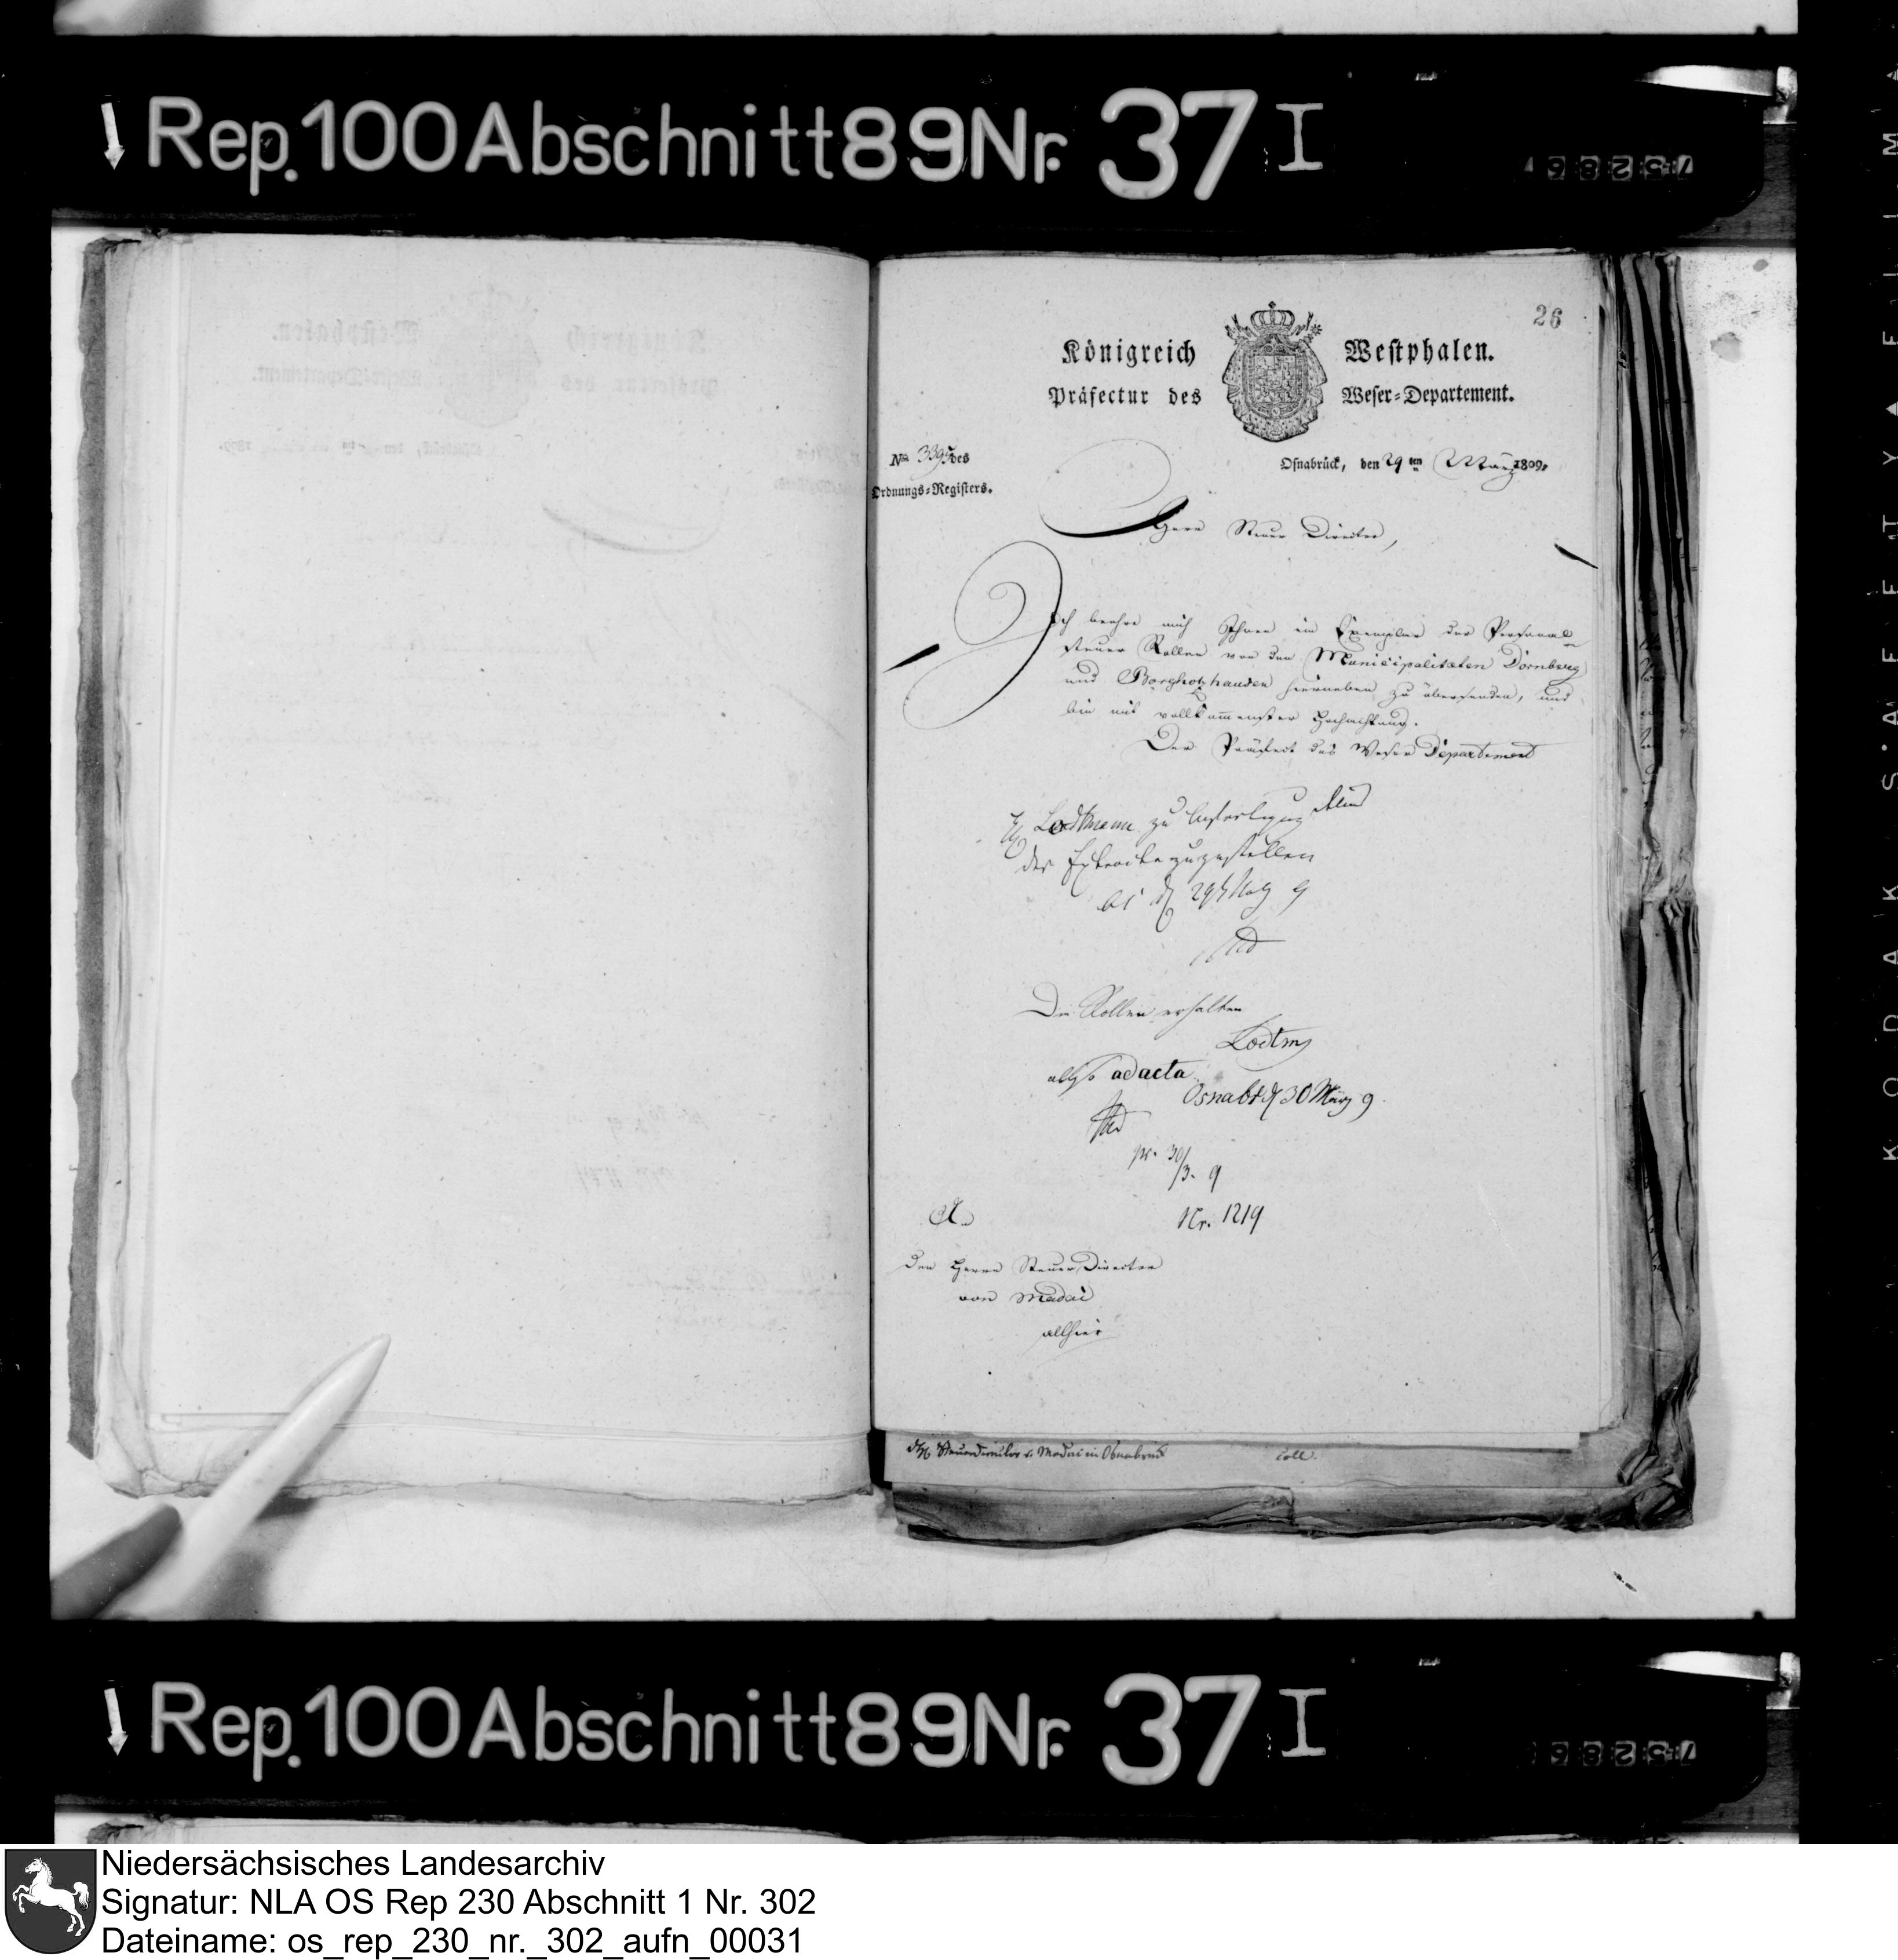 Rep. 100 Abschnitt 89 Nr. 37 I
26
Königreich Westphalen.
Präfectur des Weser-Departement.
No. 3395 des
Ordnungs-Registers.
Osnabrück, den 29 ten März 1809.
Herr Steuer Director,
Ich beehre mich Ihnen ein Exemplar der Personal-
steuer Rollen von den Municipalitæten Dornberg
und Borgholzhausen hierneben zu übersenden, und
bin mit vollkommenster Hochachtung.
Der Präfect des Weser Departement
Lodtmann zu Anfertigung
der Extracte zuzustellen
Die Rollen erhalten
Lodtm
ad acta
Osnabr d 30 März 9
pr. 30/3. 9
Nr. 1219
An
den Herrn Steuer Director
von Madai
allhier
Steuerdirector v. Madai in Osnabrück
Rep. 100 Abschnitt 89 Nr. 37 I
KODAK SAFETY FILM
Niedersächsisches Landesarchiv
Signatur: NLA OS Rep 230 Abschnitt 1 Nr. 302
Dateiname: os_rep_230_nr._302_aufn_00031